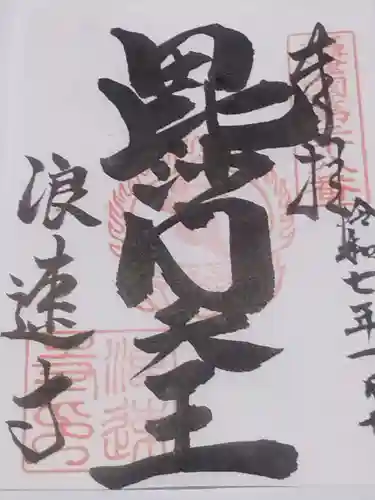 奉拝
令和七年一月十
毘沙門天王
浪速寺